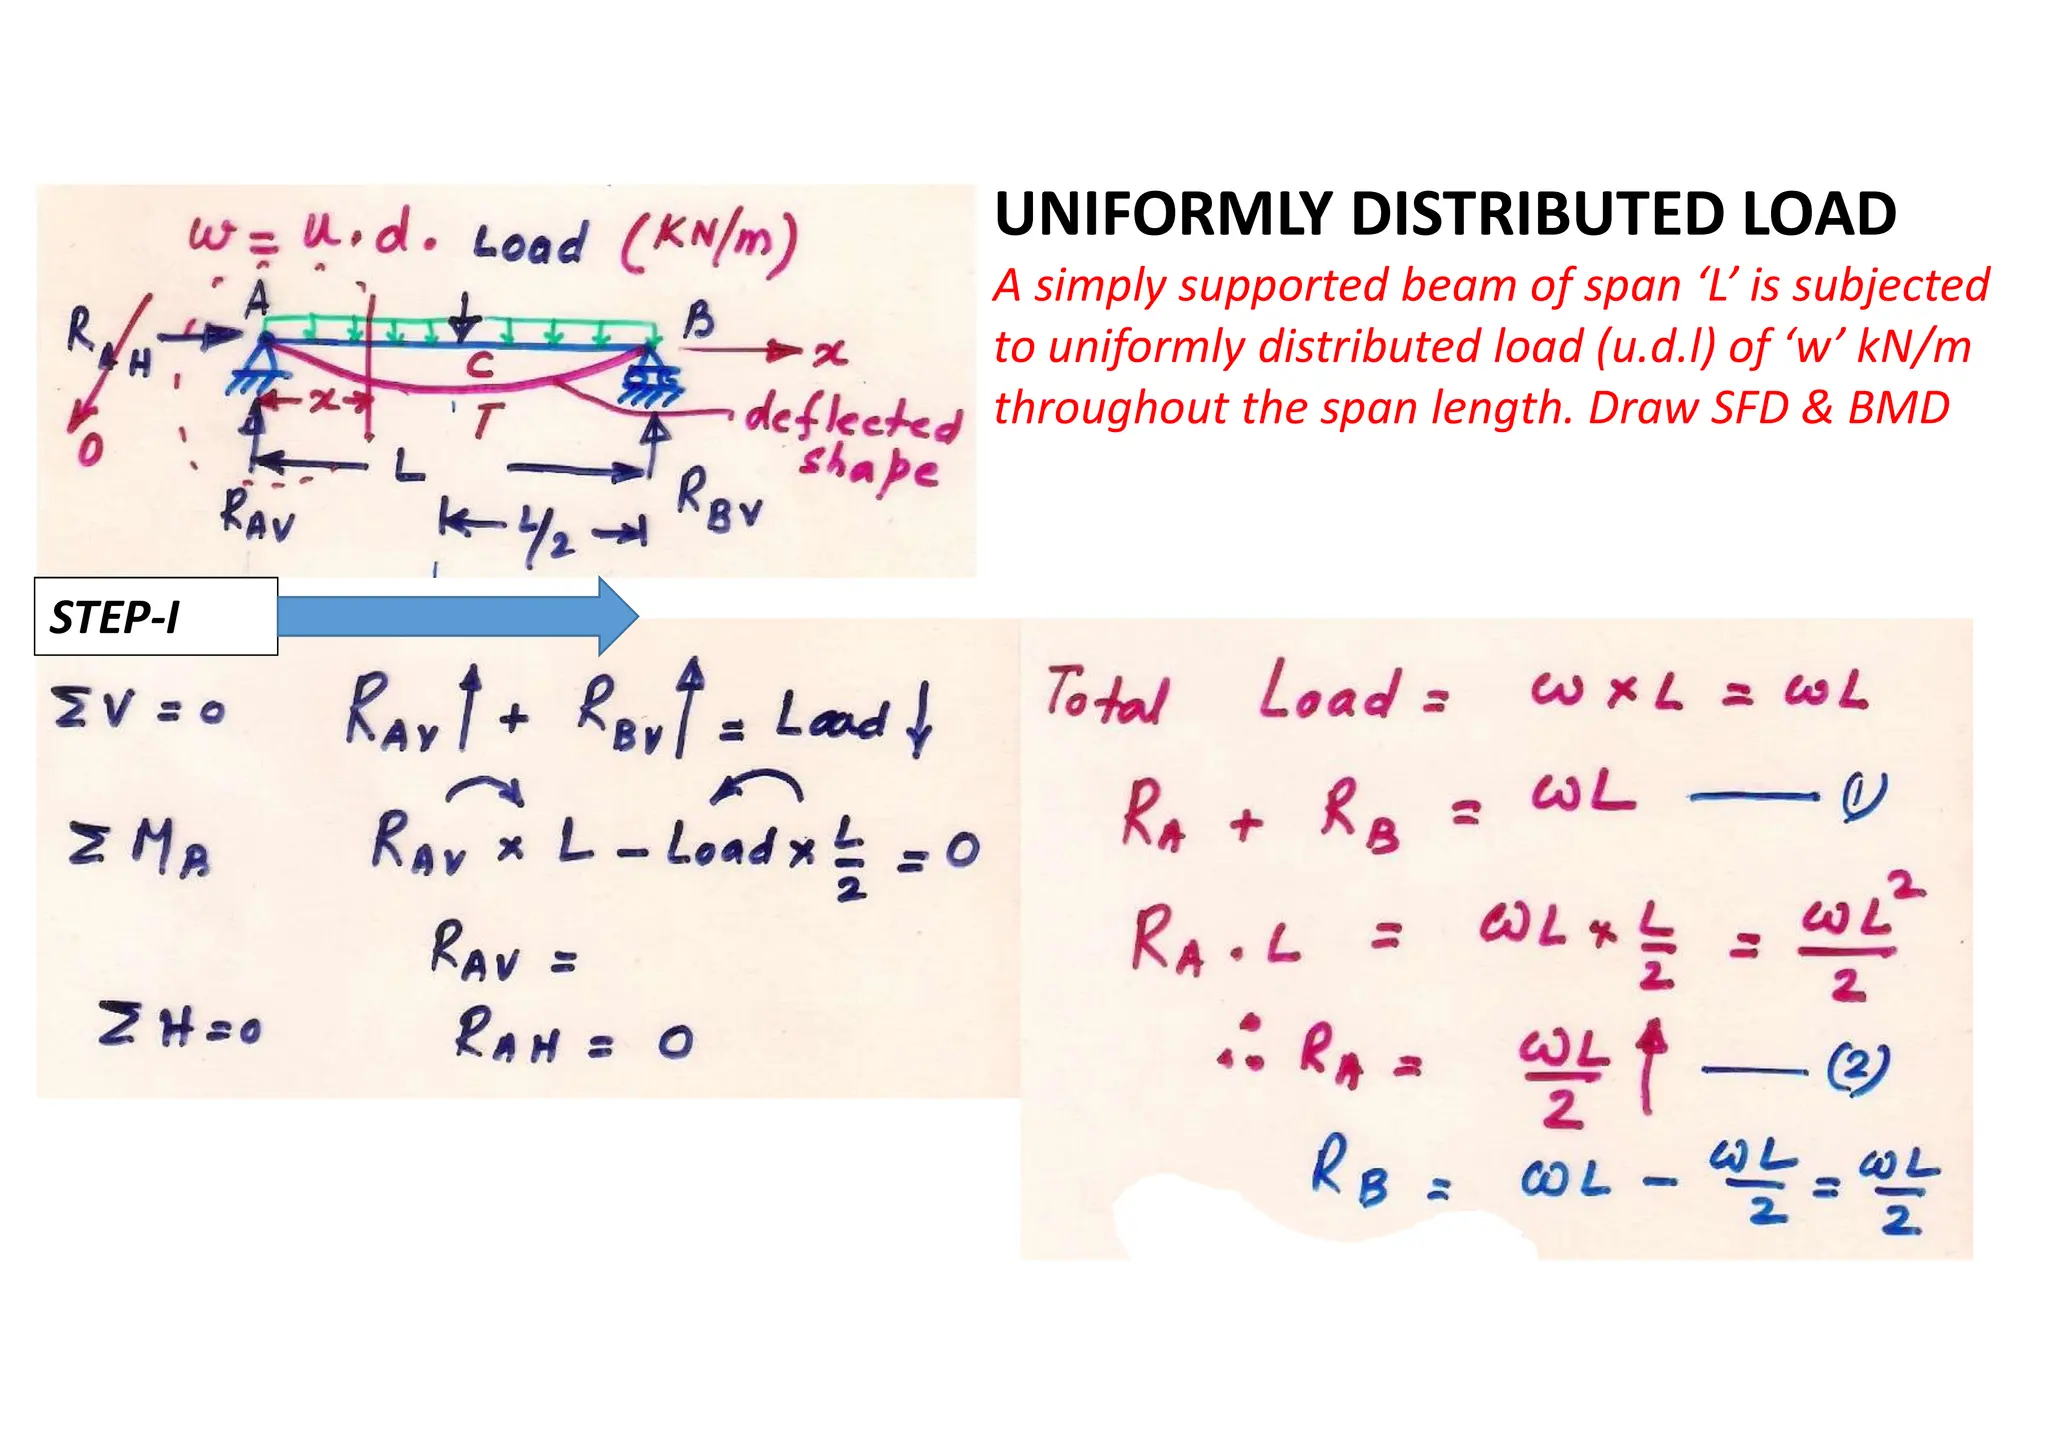 UNIFORMLY DISTRIBUTED LOAD
A simply supported beam of span ‘L’ is subjected
to uniformly distributed load (u.d.l) of ‘w’ kN/m
throughout the span length. Draw SFD & BMD
w = u.d. Load (KN/m)
A
B
R_AH
0
C
x
x
T
deflected
shape
L
R_AV
R_BV
L/2
STEP-I
ΣV = 0 R_AV↑ + R_BV↑ = Load↓
ΣM_B R_AV × L - Load × L/2 = 0
R_AV =
ΣH = 0 R_AH = 0
Total Load = ω × L = ωL
R_A + R_B = ωL —— (1)
R_A . L = ωL × L/2 = ωL²/2
∴ R_A = ωL/2 ↑ —— (2)
R_B = ωL - ωL/2 = ωL/2